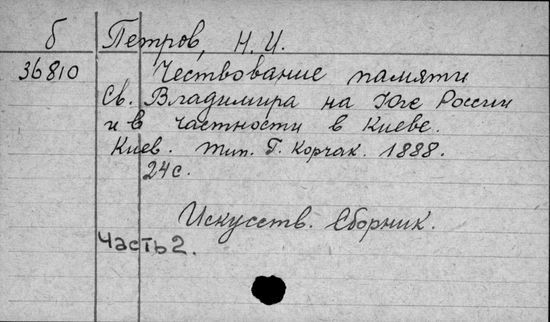 б Петров, Н. И.
36810 Чествование памяти
Св. Владимира на Юге России
и в частности в Киеве.
Киев. Тип. Г. Корчак. 1888.
24 с.
Искусств. Сборник.
Часть 2.